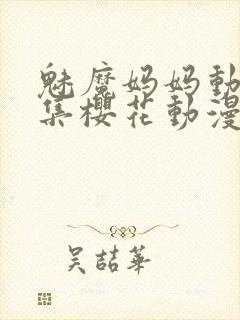 魅魔妈妈動
集櫻花動漫
吴喆華